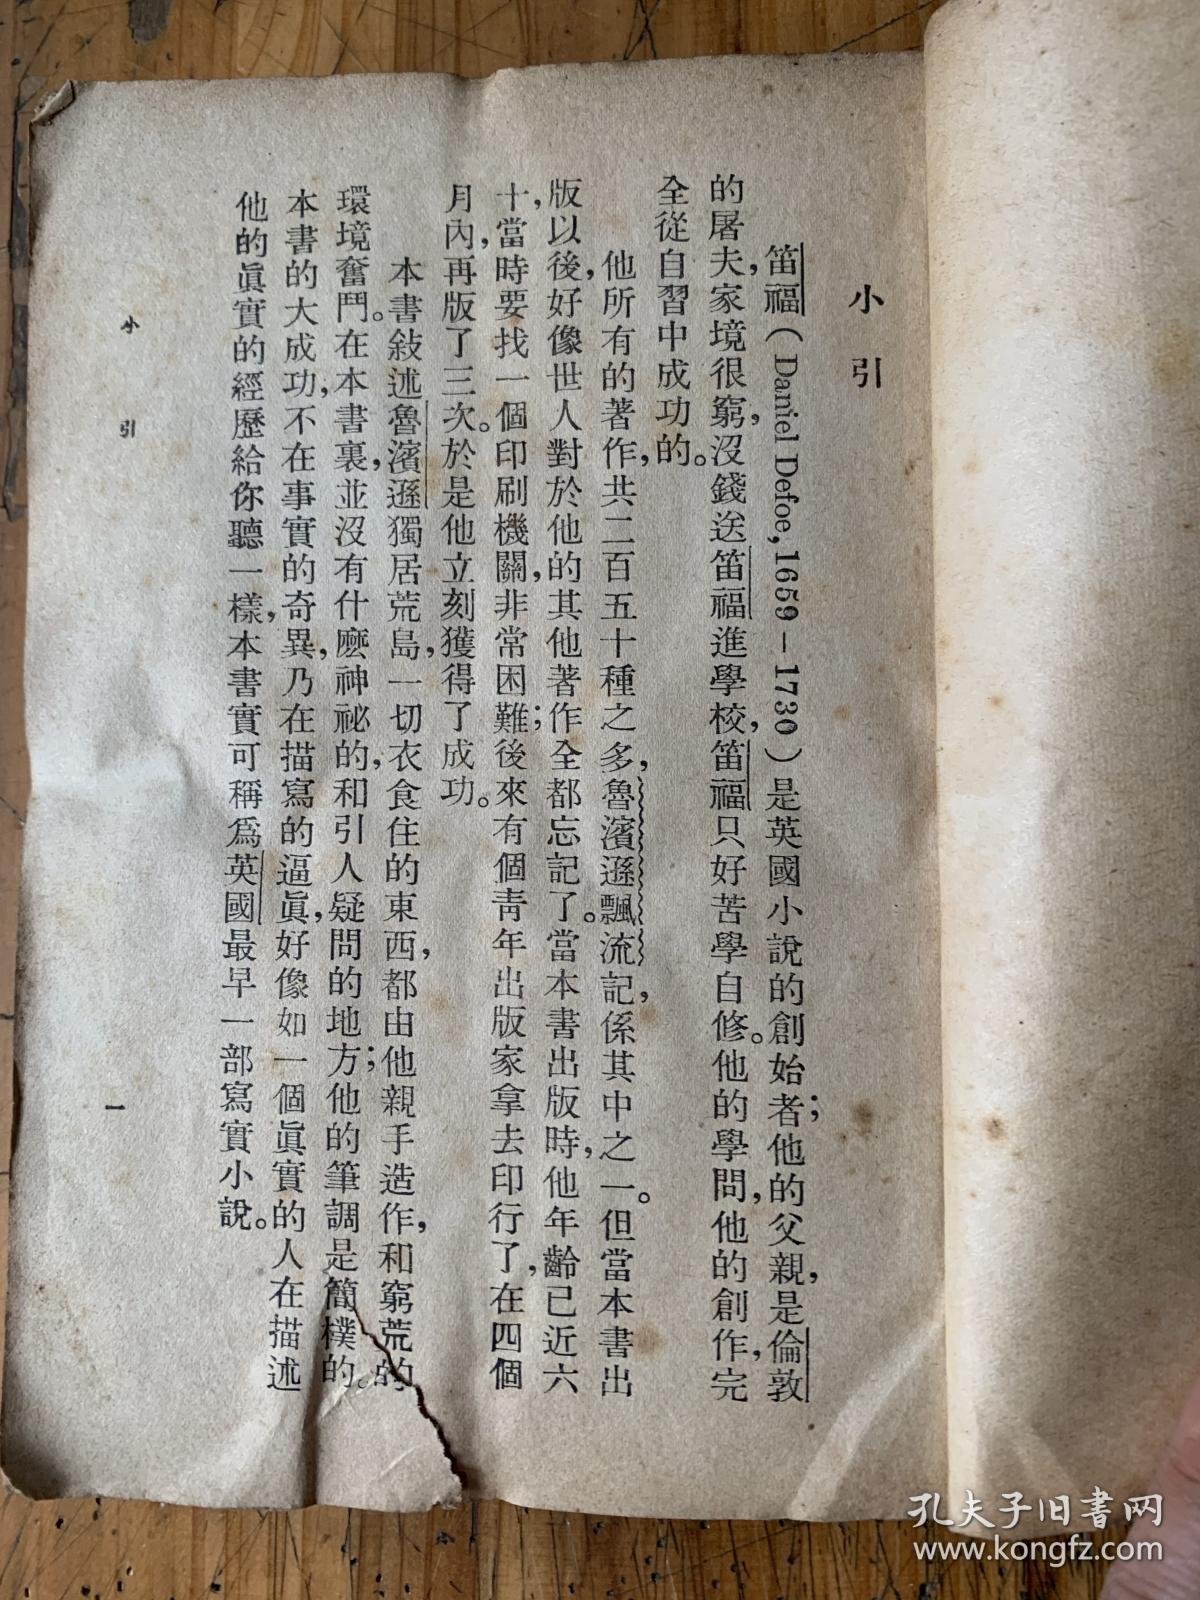 小引
笛福（Daniel Defoe, 1659－1730）是英國小說的創始者；他的父親，是倫敦
的屠夫，家境很窮，沒錢送笛福進學校，笛福只好苦學自修。他的學問，他的創作，完
全從自習中成功的。
他所有的著作，共二百五十種之多，魯濱遜飄流記，係其中之一。但當本書出
版以後，好像世人對於他的其他著作全都忘記了。當本書出版時，他年齡已近六
十，當時要找一個印刷機關，非常困難；後來有個靑年出版家拿去印行了，在四個
月內，再版了三次。於是他立刻獲得了成功。
本書敍述魯濱遜獨居荒島，一切衣食住的東西，都由他親手造作，和窮荒的
環境奮鬥。在本書裏，並沒有什麽神祕的，和引人疑問的地方；他的筆調是簡樸的。
本書的大成功，不在事實的奇異，乃在描寫的逼眞，好像如一個眞實的人在描述
他的眞實的經歷給你聽一樣，本書實可稱爲英國最早一部寫實小說。
小引
一
孔夫子旧书网
www.kongfz.com